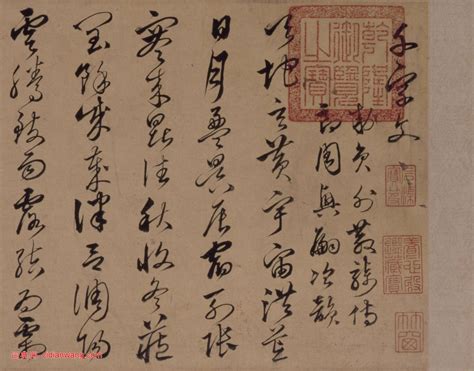 千字文
敕員外散騎侍
郎周興嗣次韻
天地玄黃宇宙洪荒
日月盈昃辰宿列張
寒来暑往秋收冬藏
閏餘成歲律呂調陽
雲騰致雨露結為霜
乾隆御覽之寶
cidianwang.com